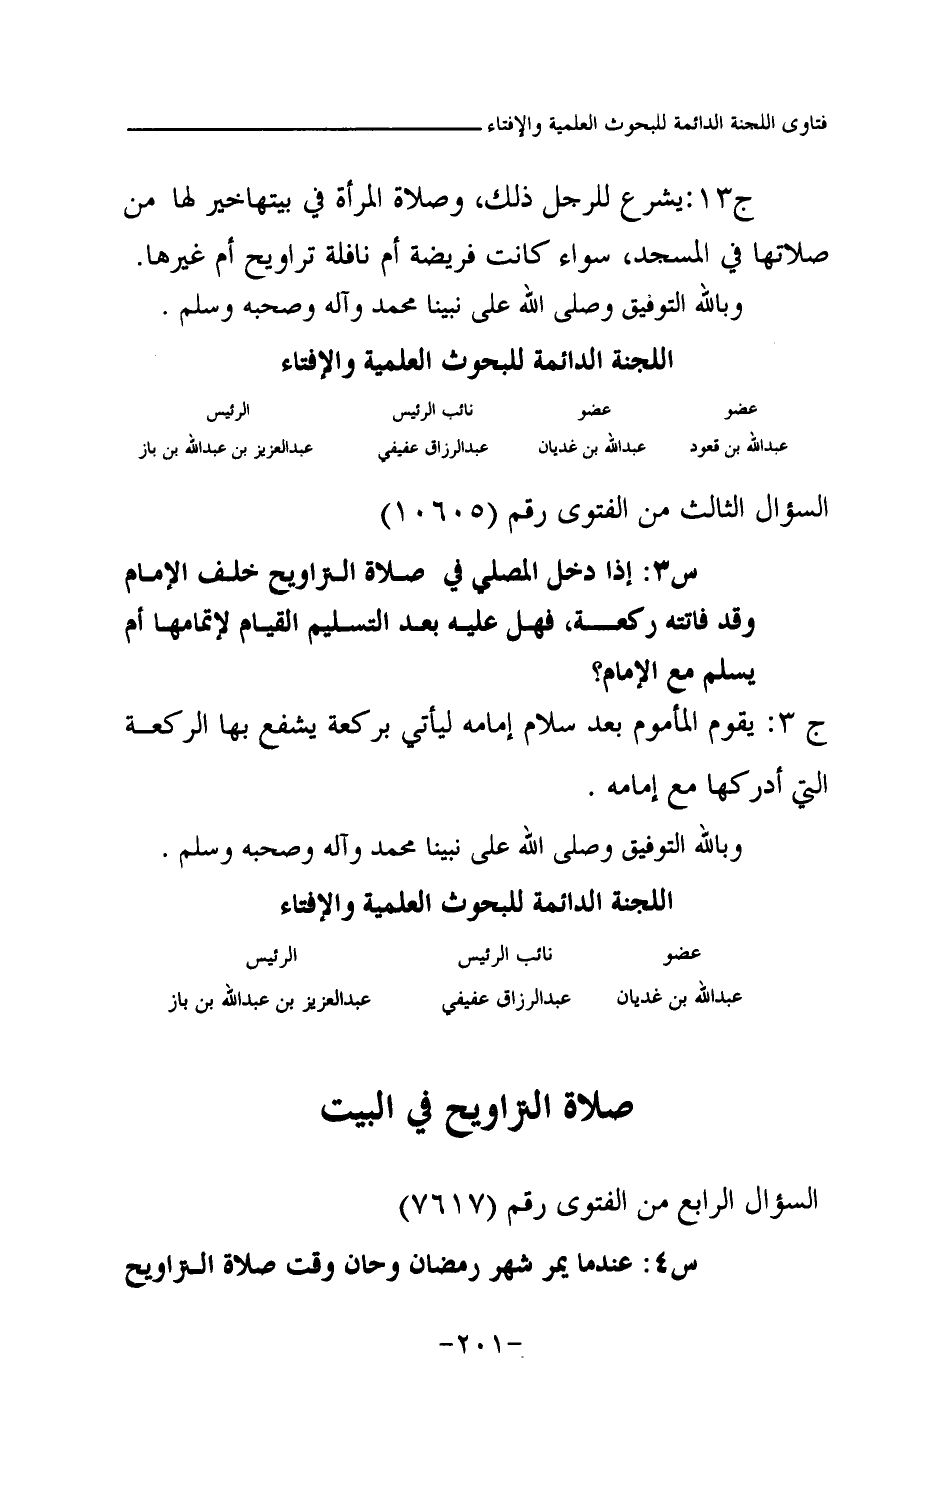 فتاوى اللجنة الدائمة للبحوث العلمية والإفتاء
ج١٣:يشرع للرجل ذلك، وصلاة المرأة في بيتهاخير لها من
صلاتها في المسجد، سواء كانت فريضة أم نافلة تراويح أم غيرها.
وبالله التوفيق وصلى الله على نبينا محمد وآله وصحبه وسلم .
اللجنة الدائمة للبحوث العلمية والإفتاء
عضو عضو نائب الرئيس الرئيس
عبدالله بن قعود عبدالله بن غديان عبدالرزاق عفيفي عبدالعزيز بن عبدالله بن باز
السؤال الثالث من الفتوى رقم (١٠٦٠٥)
س٣: إذا دخل المصلي في صلاة التراويح خلف الإمام
وقد فاتته ركعة، فهل عليه بعد التسليم القيام لإتمامها أم
يسلم مع الإمام؟
ج ٣: يقوم المأموم بعد سلام إمامه ليأتي بركعة يشفع بها الركعة
التي أدركها مع إمامه .
وبالله التوفيق وصلى الله على نبينا محمد وآله وصحبه وسلم .
اللجنة الدائمة للبحوث العلمية والإفتاء
عضو نائب الرئيس الرئيس
عبدالله بن غديان عبدالرزاق عفيفي عبدالعزيز بن عبدالله بن باز
صلاة التراويح في البيت
السؤال الرابع من الفتوى رقم (٧٦١٧)
س٤: عندما يمر شهر رمضان وحان وقت صلاة التراويح
-٢٠١-